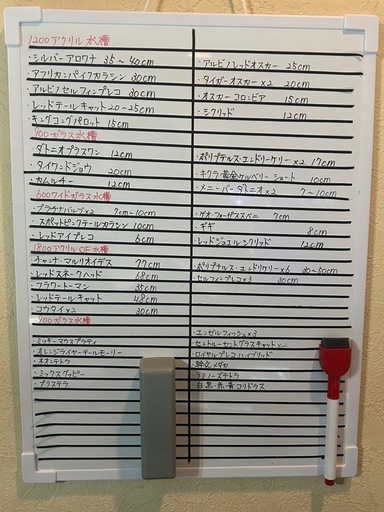 1200アクリル水槽
・シルバーアロワナ 35～40cm
・アフリカンパイクカラシン 30cm
・アルビノセルフィンプレコ 30cm
・レッドテールキャット 20～25cm
・キングコングパロット 15cm
・アルビノレッドオスカー 25cm
・タイガーオスカー×2 20cm
・オスカーコロンビア 15cm
・シクリッド 12cm
900ガラス水槽
・ダトニオプラスワン 12cm
・タイワンドジョウ 20cm
・カムルチー 12cm
・ポリプテルス・エンドリケリー×2 17cm
・キクラ 10cm
・メニーバーダトニオ×2 7～10cm
600ワイドガラス水槽
・プラチナバルブ×2 7cm～10cm
・スポットピンクテールカラシン 10cm
・レッドアイプレコ 6cm
・ゲオ・フォーガススベニ 7cm
・ギギ 8cm
・レッドジュエルシクリッド 12cm
1800アクリルOF水槽
・チャンナ・マルリオイデス 77cm
・レッドスネークヘッド 68cm
・フラワートーマン 35cm
・レッドテールキャット 48cm
・コウタイ×2 30cm
・ポリプテルス・エンドリケリー×6 30～50cm
・セルフィンプレコ×3 30cm
400ガラス水槽
・ミッキーマウスプラティ
・オレンジライヤーテールモーリー
・ネオンテトラ
・ミックスグッピー
・プリステラ
・エンゼルフィッシュ×3
・セントルーセントグラスキャット
・ロイヤルプレコハイブリッド
・幹之メダカ
・ラミノーズテトラ
・白・黒・赤・青コリドラス